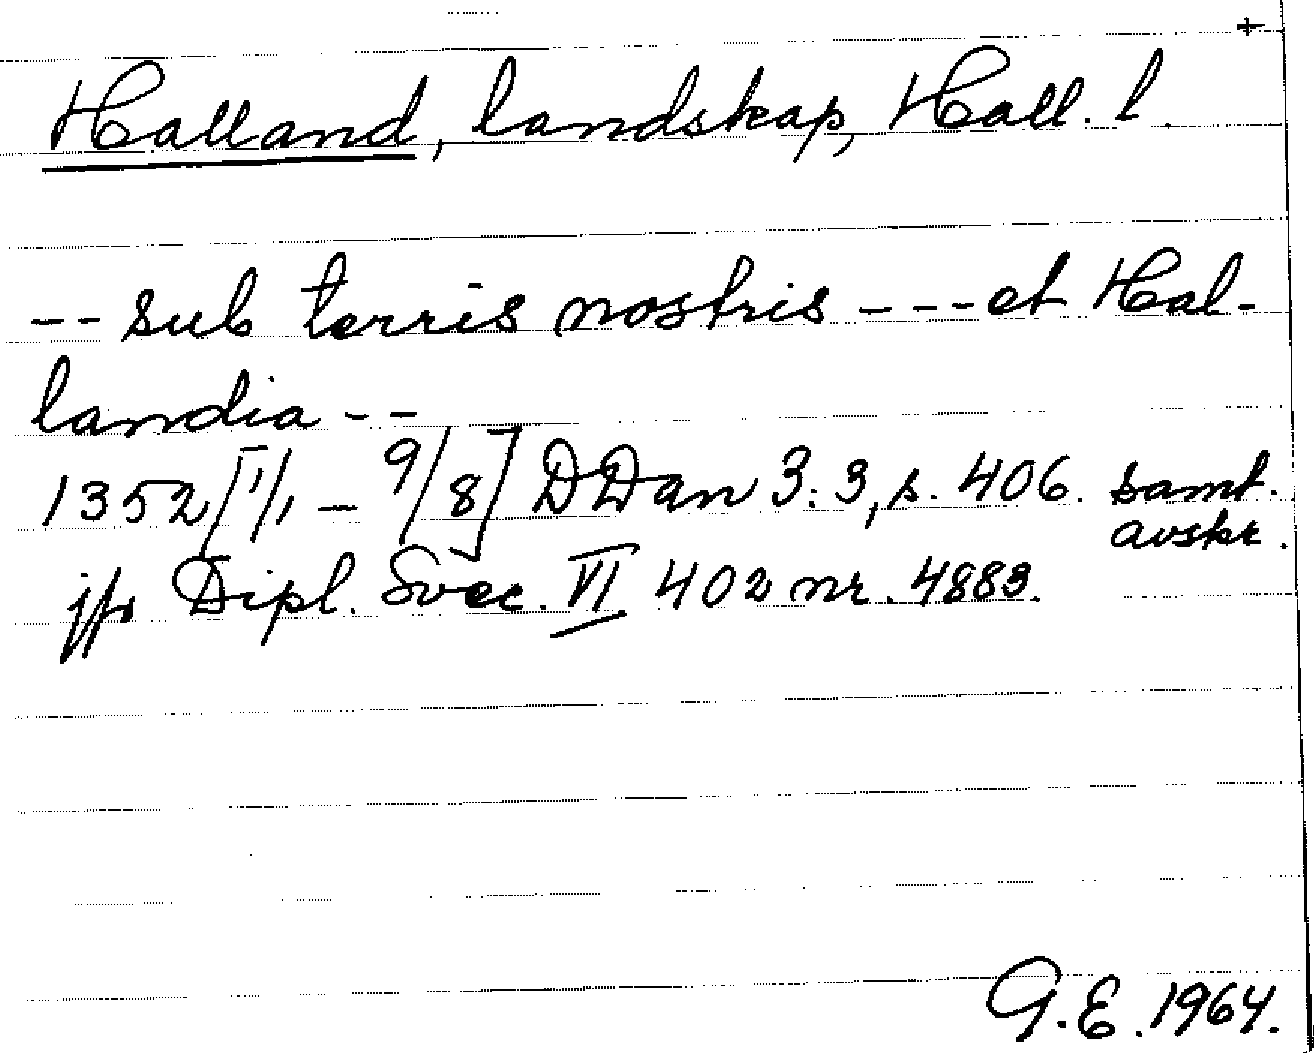 +
Halland, landskap, Hall. l.
-- sub terris nostris --- et Hal-
landia --
1352 [1/1 – 9/8] DDan 3:3, s. 406. samt.
avskr.
jfr Dipl. Svec. VI 402 nr. 4883.
G.E. 1964.